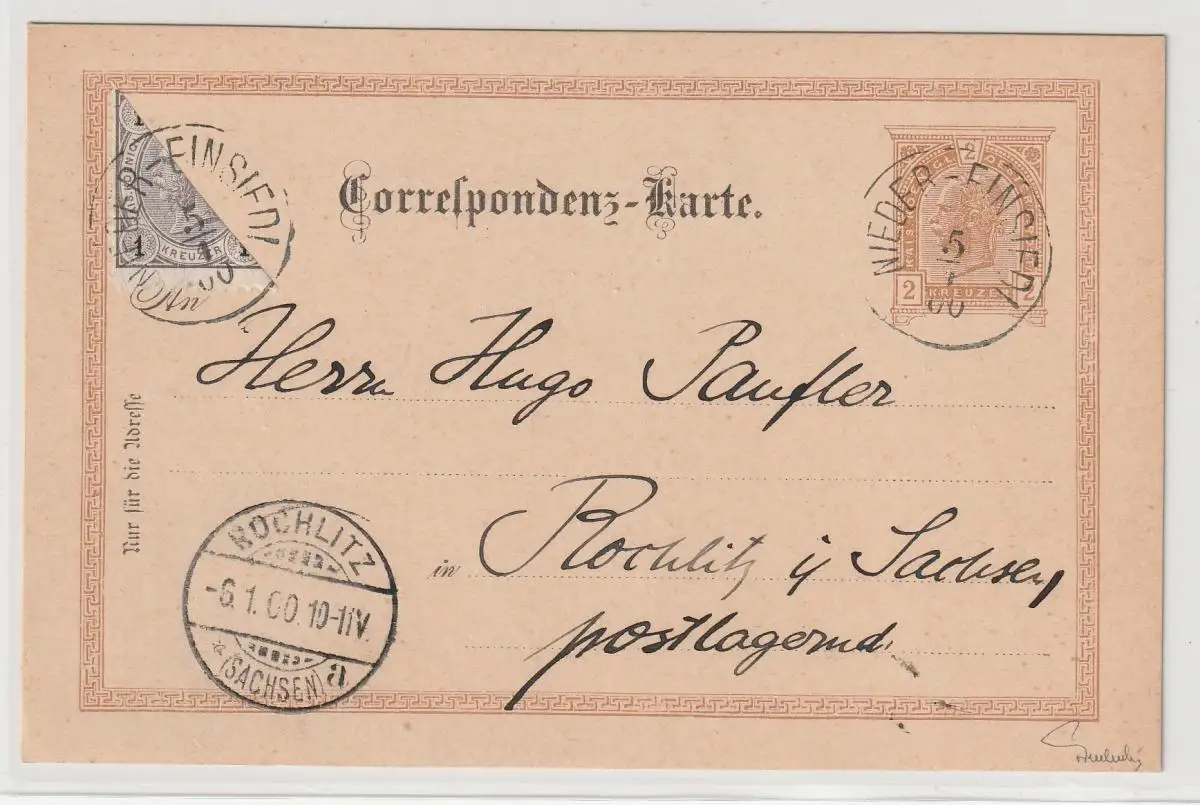 Correspondenz-Karte.
1
1
KREUZER
NIEDER-EINSIEDL
5
1
00
2
KREUZER
2
NIEDER-EINSIEDL
5
1
00
An
Herrn Hugo Paufler
Nur für die Adresse
in Rochlitz i/ Sachsen
postlagernd
ROCHLITZ
-6.1.00.10-11V.
* (SACHSEN) a